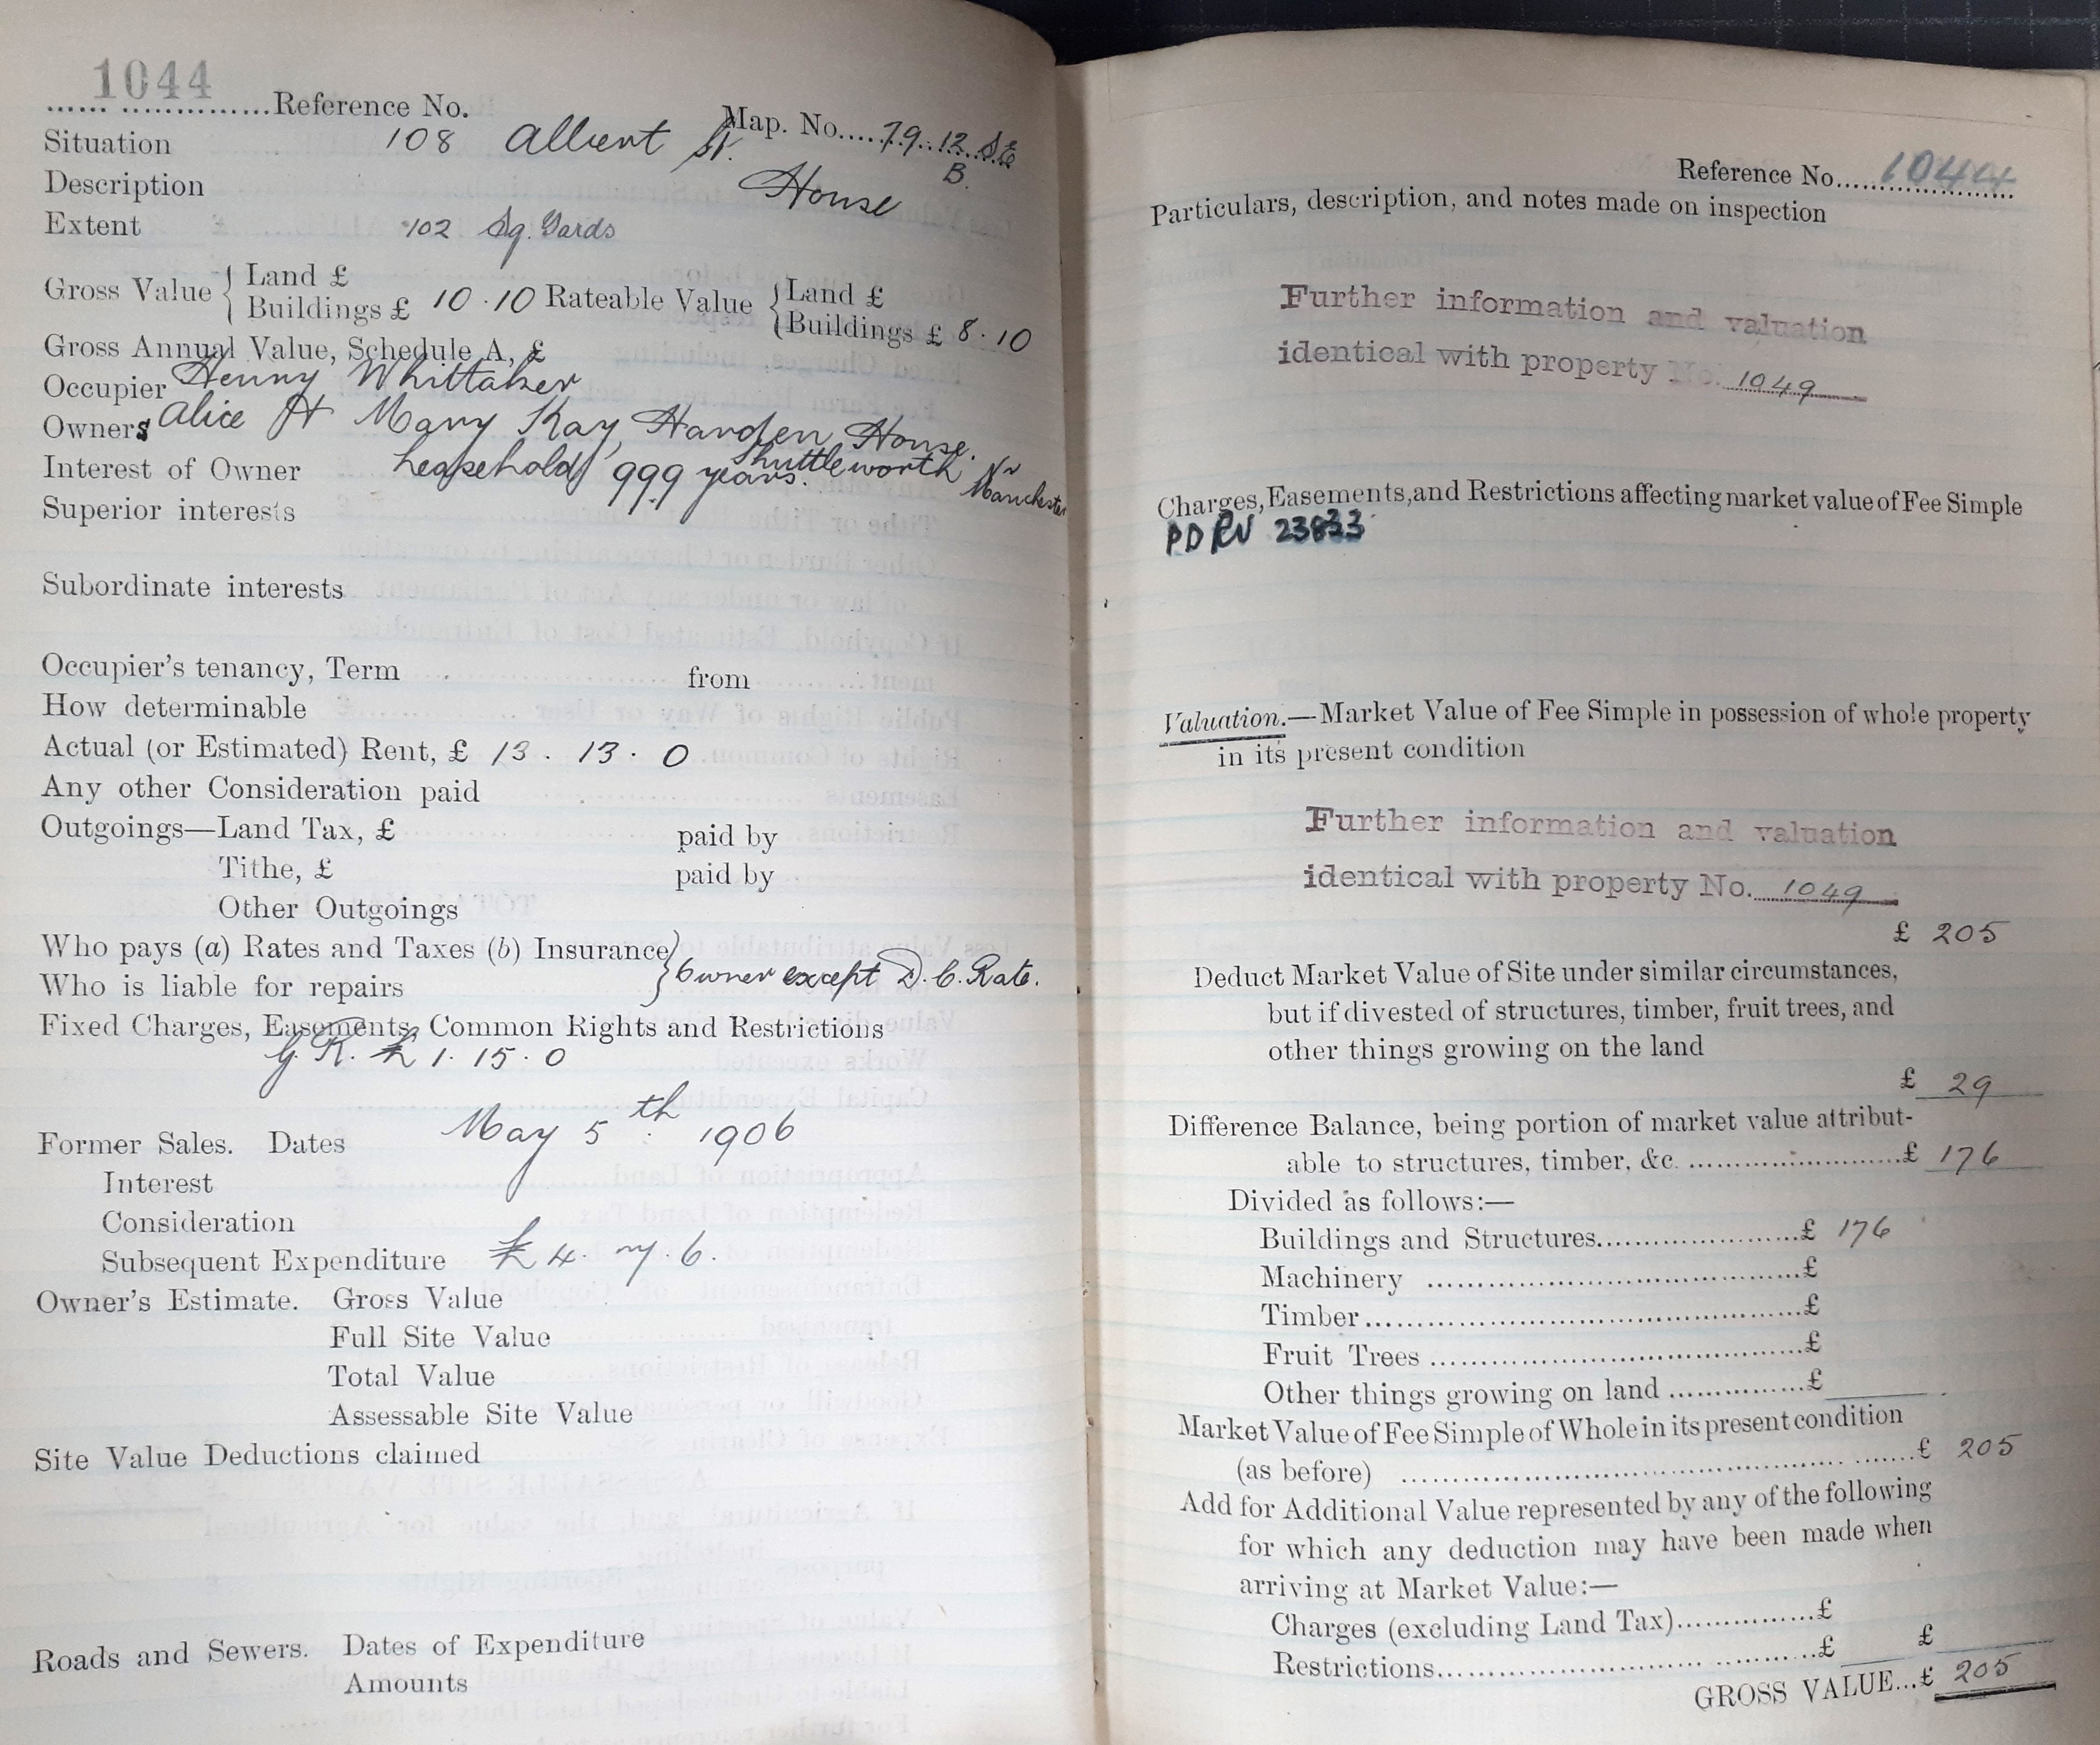 1044
Reference No. Map. No. 79.12 SE
B.
Situation 108 Albert St.
Description House
Extent 102 Sq. Yards
Gross Value { Land £
Buildings £ 10.10 Rateable Value { Land £
Buildings £ 8.10
Gross Annual Value, Schedule A, £
Occupier Henry Whittaker
Owners Alice H Mary Kay, Harden House.
Shuttleworth Nr Manchester
Interest of Owner Leasehold 999 years.
Superior interests
Subordinate interests
Occupier's tenancy, Term from
How determinable
Actual (or Estimated) Rent, £ 13. 13. 0
Any other Consideration paid
Outgoings—Land Tax, £ paid by
Tithe, £ paid by
Other Outgoings
Who pays (a) Rates and Taxes (b) Insurance
Who is liable for repairs } Owner except D.C. Rate.
Fixed Charges, Easements, Common Rights and Restrictions
G.R. £1. 15. 0
Former Sales. Dates May 5th 1906
Interest
Consideration
Subsequent Expenditure £4. 6.
Owner's Estimate. Gross Value
Full Site Value
Total Value
Assessable Site Value
Site Value Deductions claimed
Roads and Sewers. Dates of Expenditure
Amounts
Reference No. 1044
Particulars, description, and notes made on inspection
Further information and valuation
identical with property No. 1049
Charges, Easements, and Restrictions affecting market value of Fee Simple
PD RV 23833
Valuation.—Market Value of Fee Simple in possession of whole property
in its present condition
Further information and valuation
identical with property No. 1049
£ 205
Deduct Market Value of Site under similar circumstances,
but if divested of structures, timber, fruit trees, and
other things growing on the land
£ 29
Difference Balance, being portion of market value attribut-
able to structures, timber, &c. £ 176
Divided as follows:—
Buildings and Structures £ 176
Machinery £
Timber £
Fruit Trees £
Other things growing on land £
Market Value of Fee Simple of Whole in its present condition
(as before) £ 205
Add for Additional Value represented by any of the following
for which any deduction may have been made when
arriving at Market Value:—
Charges (excluding Land Tax) £
Restrictions £ £
GROSS VALUE...£ 205